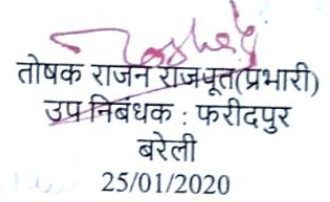 तोषक राजन राजपूत(प्रभारी)
उप निबंधक : फरीदपुर
बरेली
25/01/2020